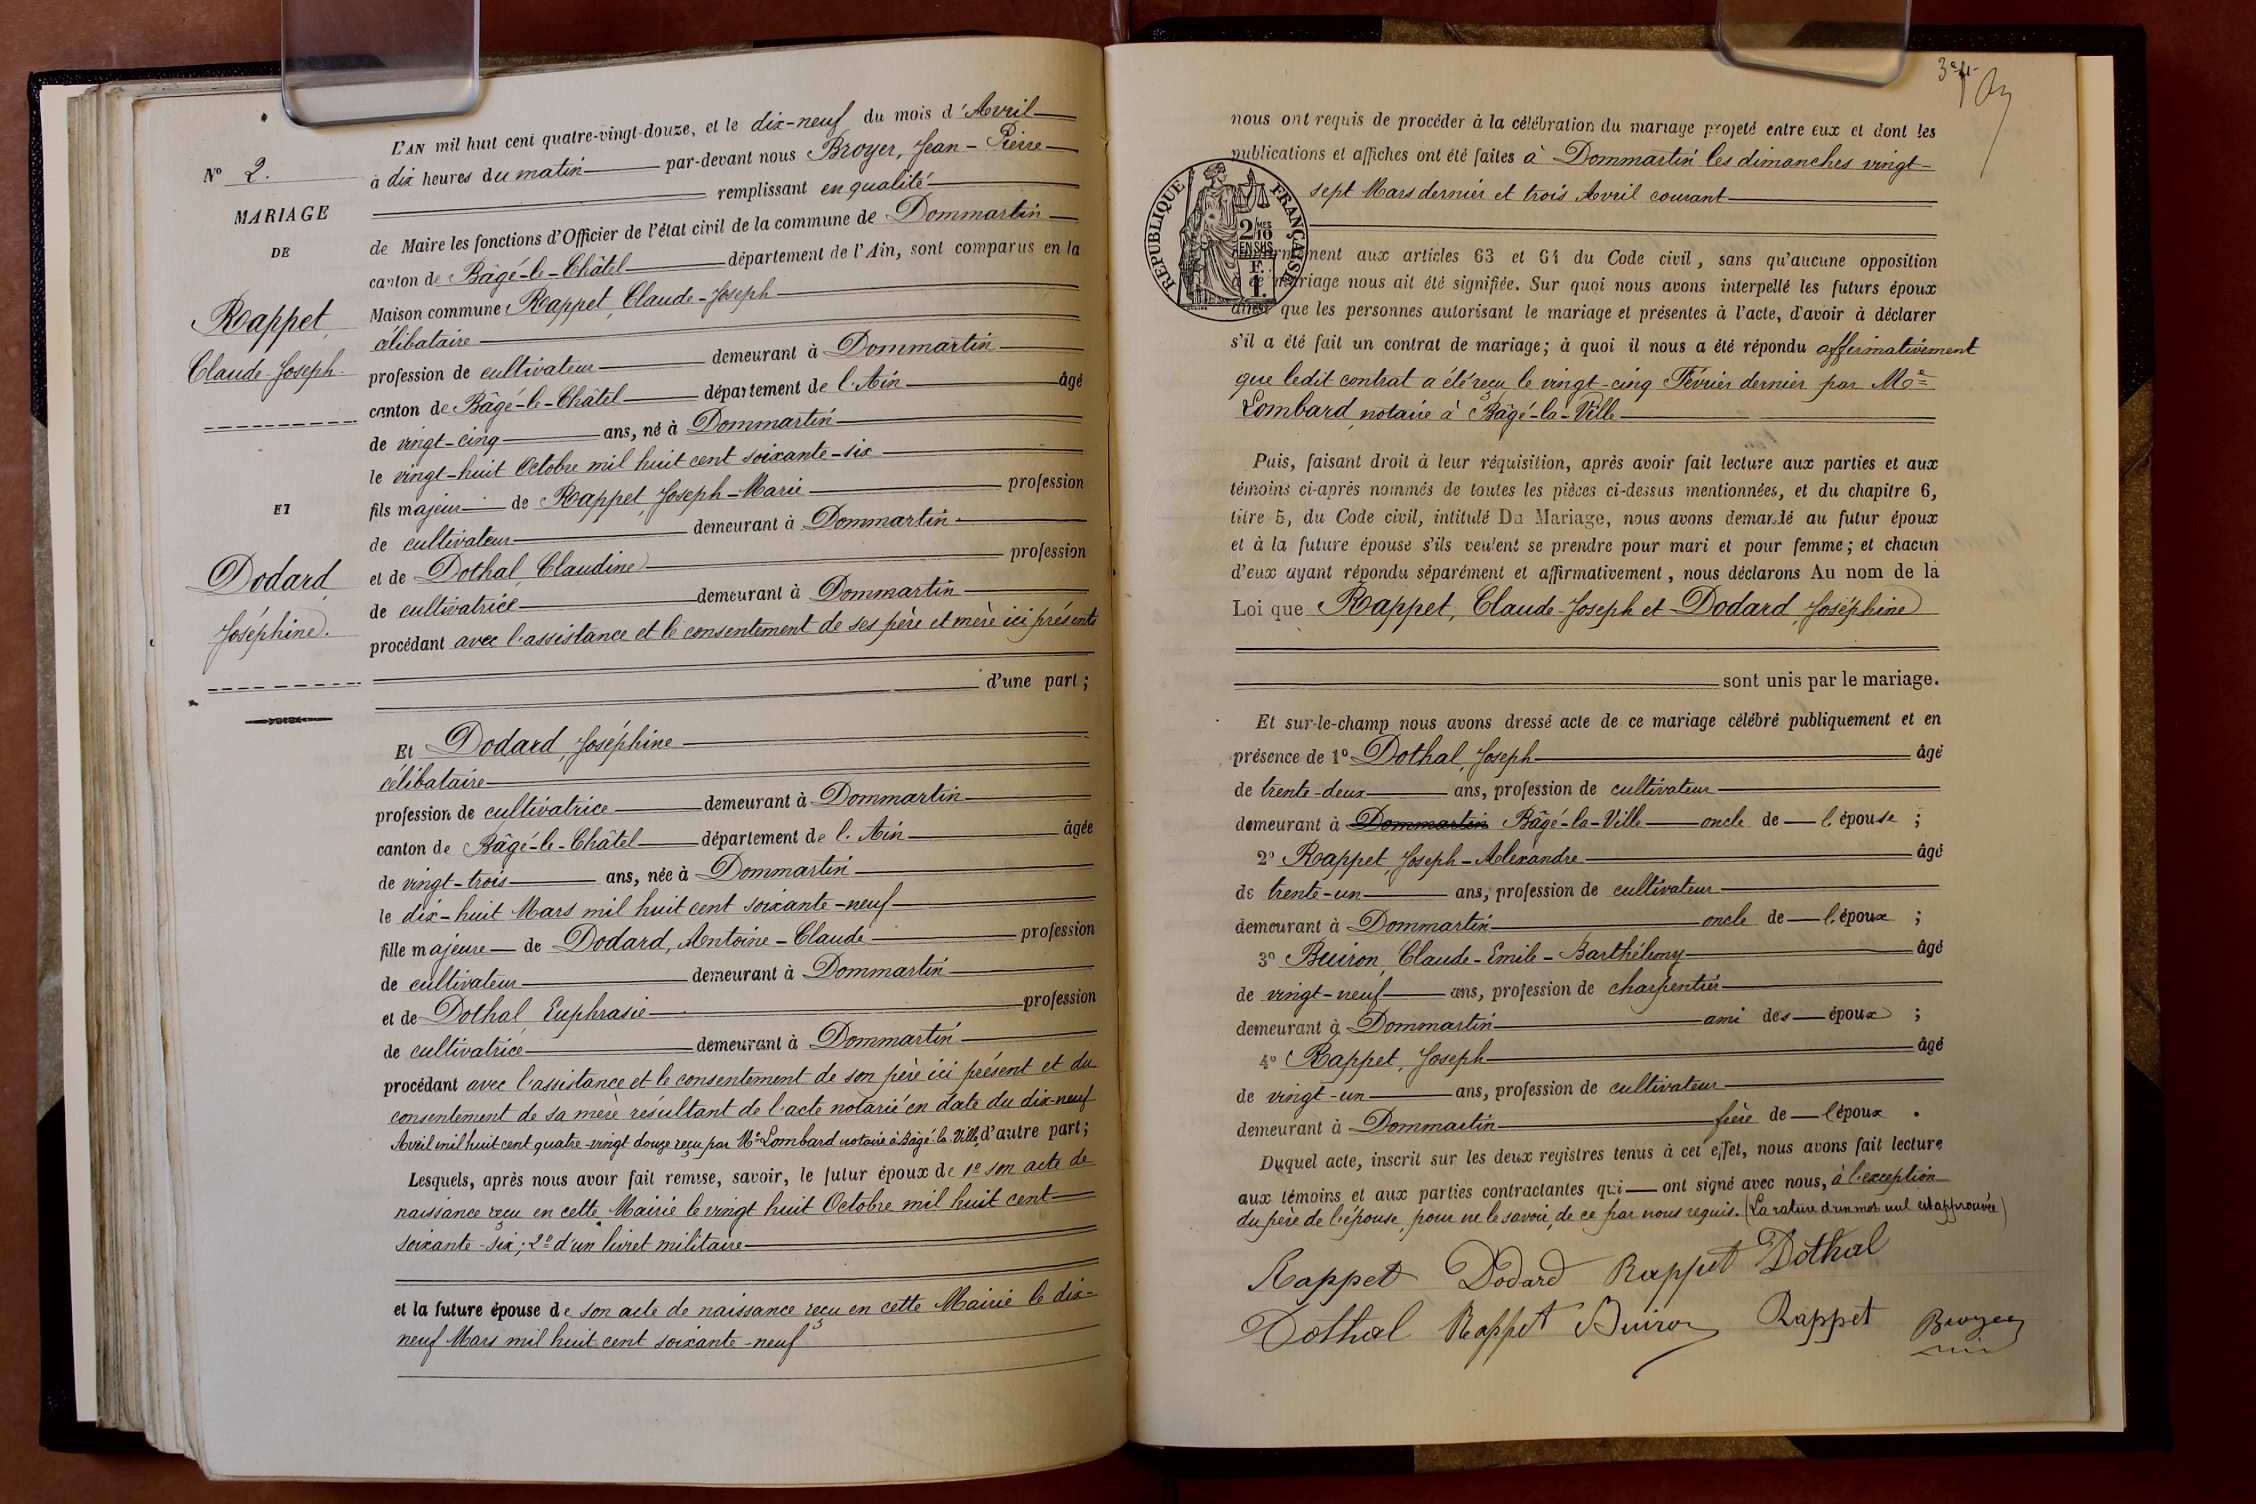 N° 2.
MARIAGE
DE
Rappet,
Claude-Joseph.
ET
Dodard,
Joséphine.
L'AN mil huit cent quatre-vingt-douze, et le dix-neuf du mois d'Avril
à dix heures du matin par-devant nous Broyer, Jean-Pierre
remplissant en qualité
de Maire les fonctions d'Officier de l'état civil de la commune de Dommartin
canton de Bâgé-le-Châtel département de l'Ain, sont comparus en la
Maison commune Rappet, Claude-Joseph
célibataire
profession de cultivateur demeurant à Dommartin
canton de Bâgé-le-Châtel département de l'Ain âgé
de vingt-cinq ans, né à Dommartin
le vingt-huit Octobre mil huit cent soixante-six
fils majeur de Rappet, Joseph-Marie profession
de cultivateur demeurant à Dommartin
et de Dothal, Claudine profession
de cultivatrice demeurant à Dommartin
procédant avec l'assistance et le consentement de ses père et mère ici présents
d'une part ;
Et Dodard, Joséphine
célibataire
profession de cultivatrice demeurant à Dommartin
canton de Bâgé-le-Châtel département de l'Ain âgée
de vingt-trois ans, née à Dommartin
le dix-huit Mars mil huit cent soixante-neuf
fille majeure de Dodard, Antoine-Claude profession
de cultivateur demeurant à Dommartin
et de Dothal Euphrasie profession
de cultivatrice demeurant à Dommartin
procédant avec l'assistance et le consentement de son père ici présent et du
consentement de sa mère résultant de l'acte notarié en date du dix-neuf
Avril mil huit cent quatre-vingt douze reçu par Me Lombard notaire à Bâgé-la-Ville, d'autre part ;
Lesquels, après nous avoir fait remise, savoir, le futur époux de 1° son acte de
naissance reçu en cette Mairie le vingt huit Octobre mil huit cent
soixante-six ; 2° d'un livret militaire
et la future épouse de son acte de naissance reçu en cette Mairie le dix-
neuf Mars mil huit cent soixante-neuf
nous ont requis de procéder à la célébration du mariage projeté entre eux et dont les
publications et affiches ont été faites à Dommartin les dimanches vingt-
sept Mars dernier et trois Avril courant
RÉPUBLIQUE FRANÇAISE
2/10 MES
EN SUS
F.
1.
conformément aux articles 63 et 64 du Code civil, sans qu'aucune opposition
à ce mariage nous ait été signifiée. Sur quoi nous avons interpellé les futurs époux
ainsi que les personnes autorisant le mariage et présentes à l'acte, d'avoir à déclarer
s'il a été fait un contrat de mariage ; à quoi il nous a été répondu affirmativement
que ledit contrat a été reçu le vingt-cinq Février dernier par Me
Lombard, notaire à Bâgé-la-Ville
Puis, faisant droit à leur réquisition, après avoir fait lecture aux parties et aux
témoins ci-après nommés de toutes les pièces ci-dessus mentionnées, et du chapitre 6,
titre 5, du Code civil, intitulé Du Mariage, nous avons demandé au futur époux
et à la future épouse s'ils veulent se prendre pour mari et pour femme ; et chacun
d'eux ayant répondu séparément et affirmativement, nous déclarons Au nom de la
Loi que Rappet, Claude-Joseph et Dodard, Joséphine
sont unis par le mariage.
Et sur-le-champ nous avons dressé acte de ce mariage célébré publiquement et en
présence de 1° Dothal, Joseph âgé
de trente-deux ans, profession de cultivateur
demeurant à Dommartin Bâgé-la-Ville oncle de l'épouse ;
2° Rappet, Joseph-Alexandre âgé
de trente-un ans, profession de cultivateur
demeurant à Dommartin oncle de l'époux ;
3° Buiron, Claude-Emile-Barthélemy âgé
de vingt-neuf ans, profession de charpentier
demeurant à Dommartin ami des époux ;
4° Rappet, Joseph âgé
de vingt-un ans, profession de cultivateur
demeurant à Dommartin frère de l'époux.
Duquel acte, inscrit sur les deux registres tenus à cet effet, nous avons fait lecture
aux témoins et aux parties contractantes qui ont signé avec nous, à l'exception
du père de l'épouse, pour ne le savoir, de ce par nous requis. (La rature d'un mot nul est approuvée)
Rappet Dodard Rappet Dothal
Dothal Rappet Buiron Rappet Broyer